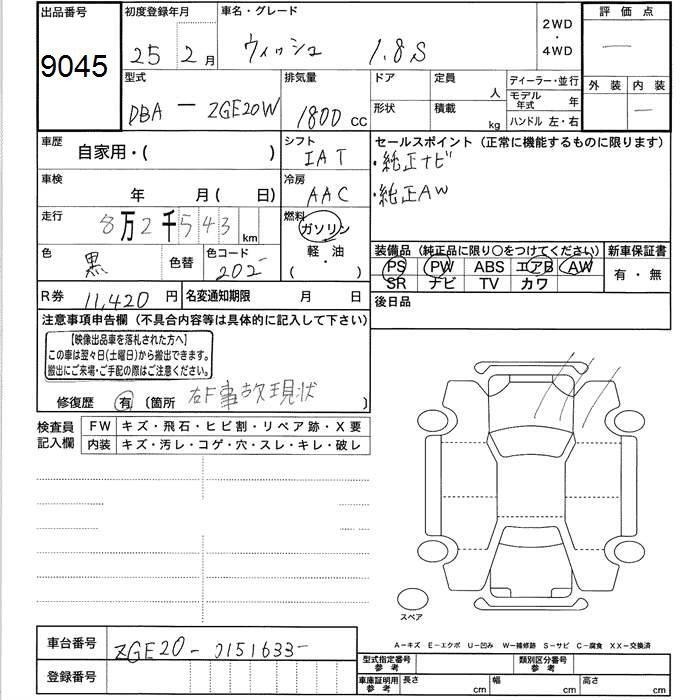 出品番号 初度登録年月 車名・グレード 2WD・4WD 評価点
9045 25年 2月 ウィッシュ 1.8S —
型式 排気量 ドア 定員 人 ディーラー・並行 外装 内装
DBA — ZGE20W 1800 cc 形状 積載 kg モデル年式 年 —
ハンドル 左・右
車歴 自家用・( ) シフト IAT セールスポイント（正常に機能するものに限ります）
・純正ナビ
車検 年 月( 日) 冷房 AAC ・純正AW
走行 8万2千543km 燃料 ガソリン
軽・油
( ・ )
色 黒 色替 色コード 202 装備品（純正品に限り○をつけてください） 新車保証書
PS PW ABS エアB AW 有・無
SR ナビ TV カワ
R券 11,420円 名変通知期限 月 日 後日品
注意事項申告欄（不具合内容等は具体的に記入して下さい）
【映像出品車を落札された方へ】
この車は翌々日(土曜日)から搬出できます。
搬出にご来場・ご手配の際はご注意ください。
修復歴 有 〔箇所 右F事故現状 〕
検査員記入欄 FW キズ・飛石・ヒビ割・リペア跡・X要
内装 キズ・汚レ・コゲ・穴・スレ・キレ・破レ
スペア
A－キズ E－エクボ U－凹み W－補修跡 S－サビ C－腐食 XX－交換済
車台番号 ZGE20-0151633-
型式指定番号 参考 類別区分番号 参考
登録番号
車庫証明用 参考 長さ cm 幅 cm 高さ cm